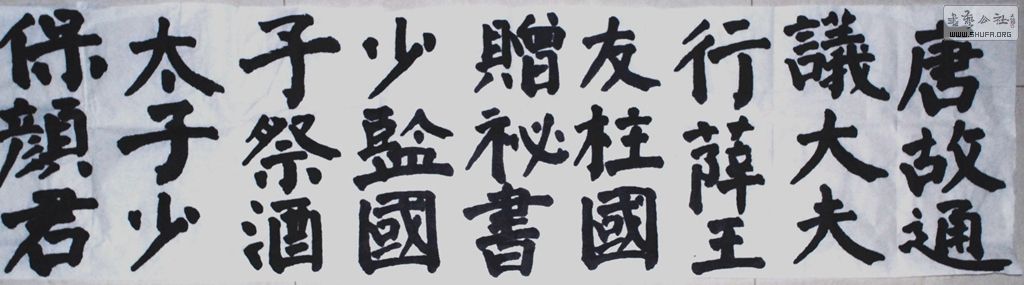 唐故通
議大夫
行薛王
友柱國
贈祕書
少監國
子祭酒
太子少
保顏君
书艺公社
www.SHUFA.ORG